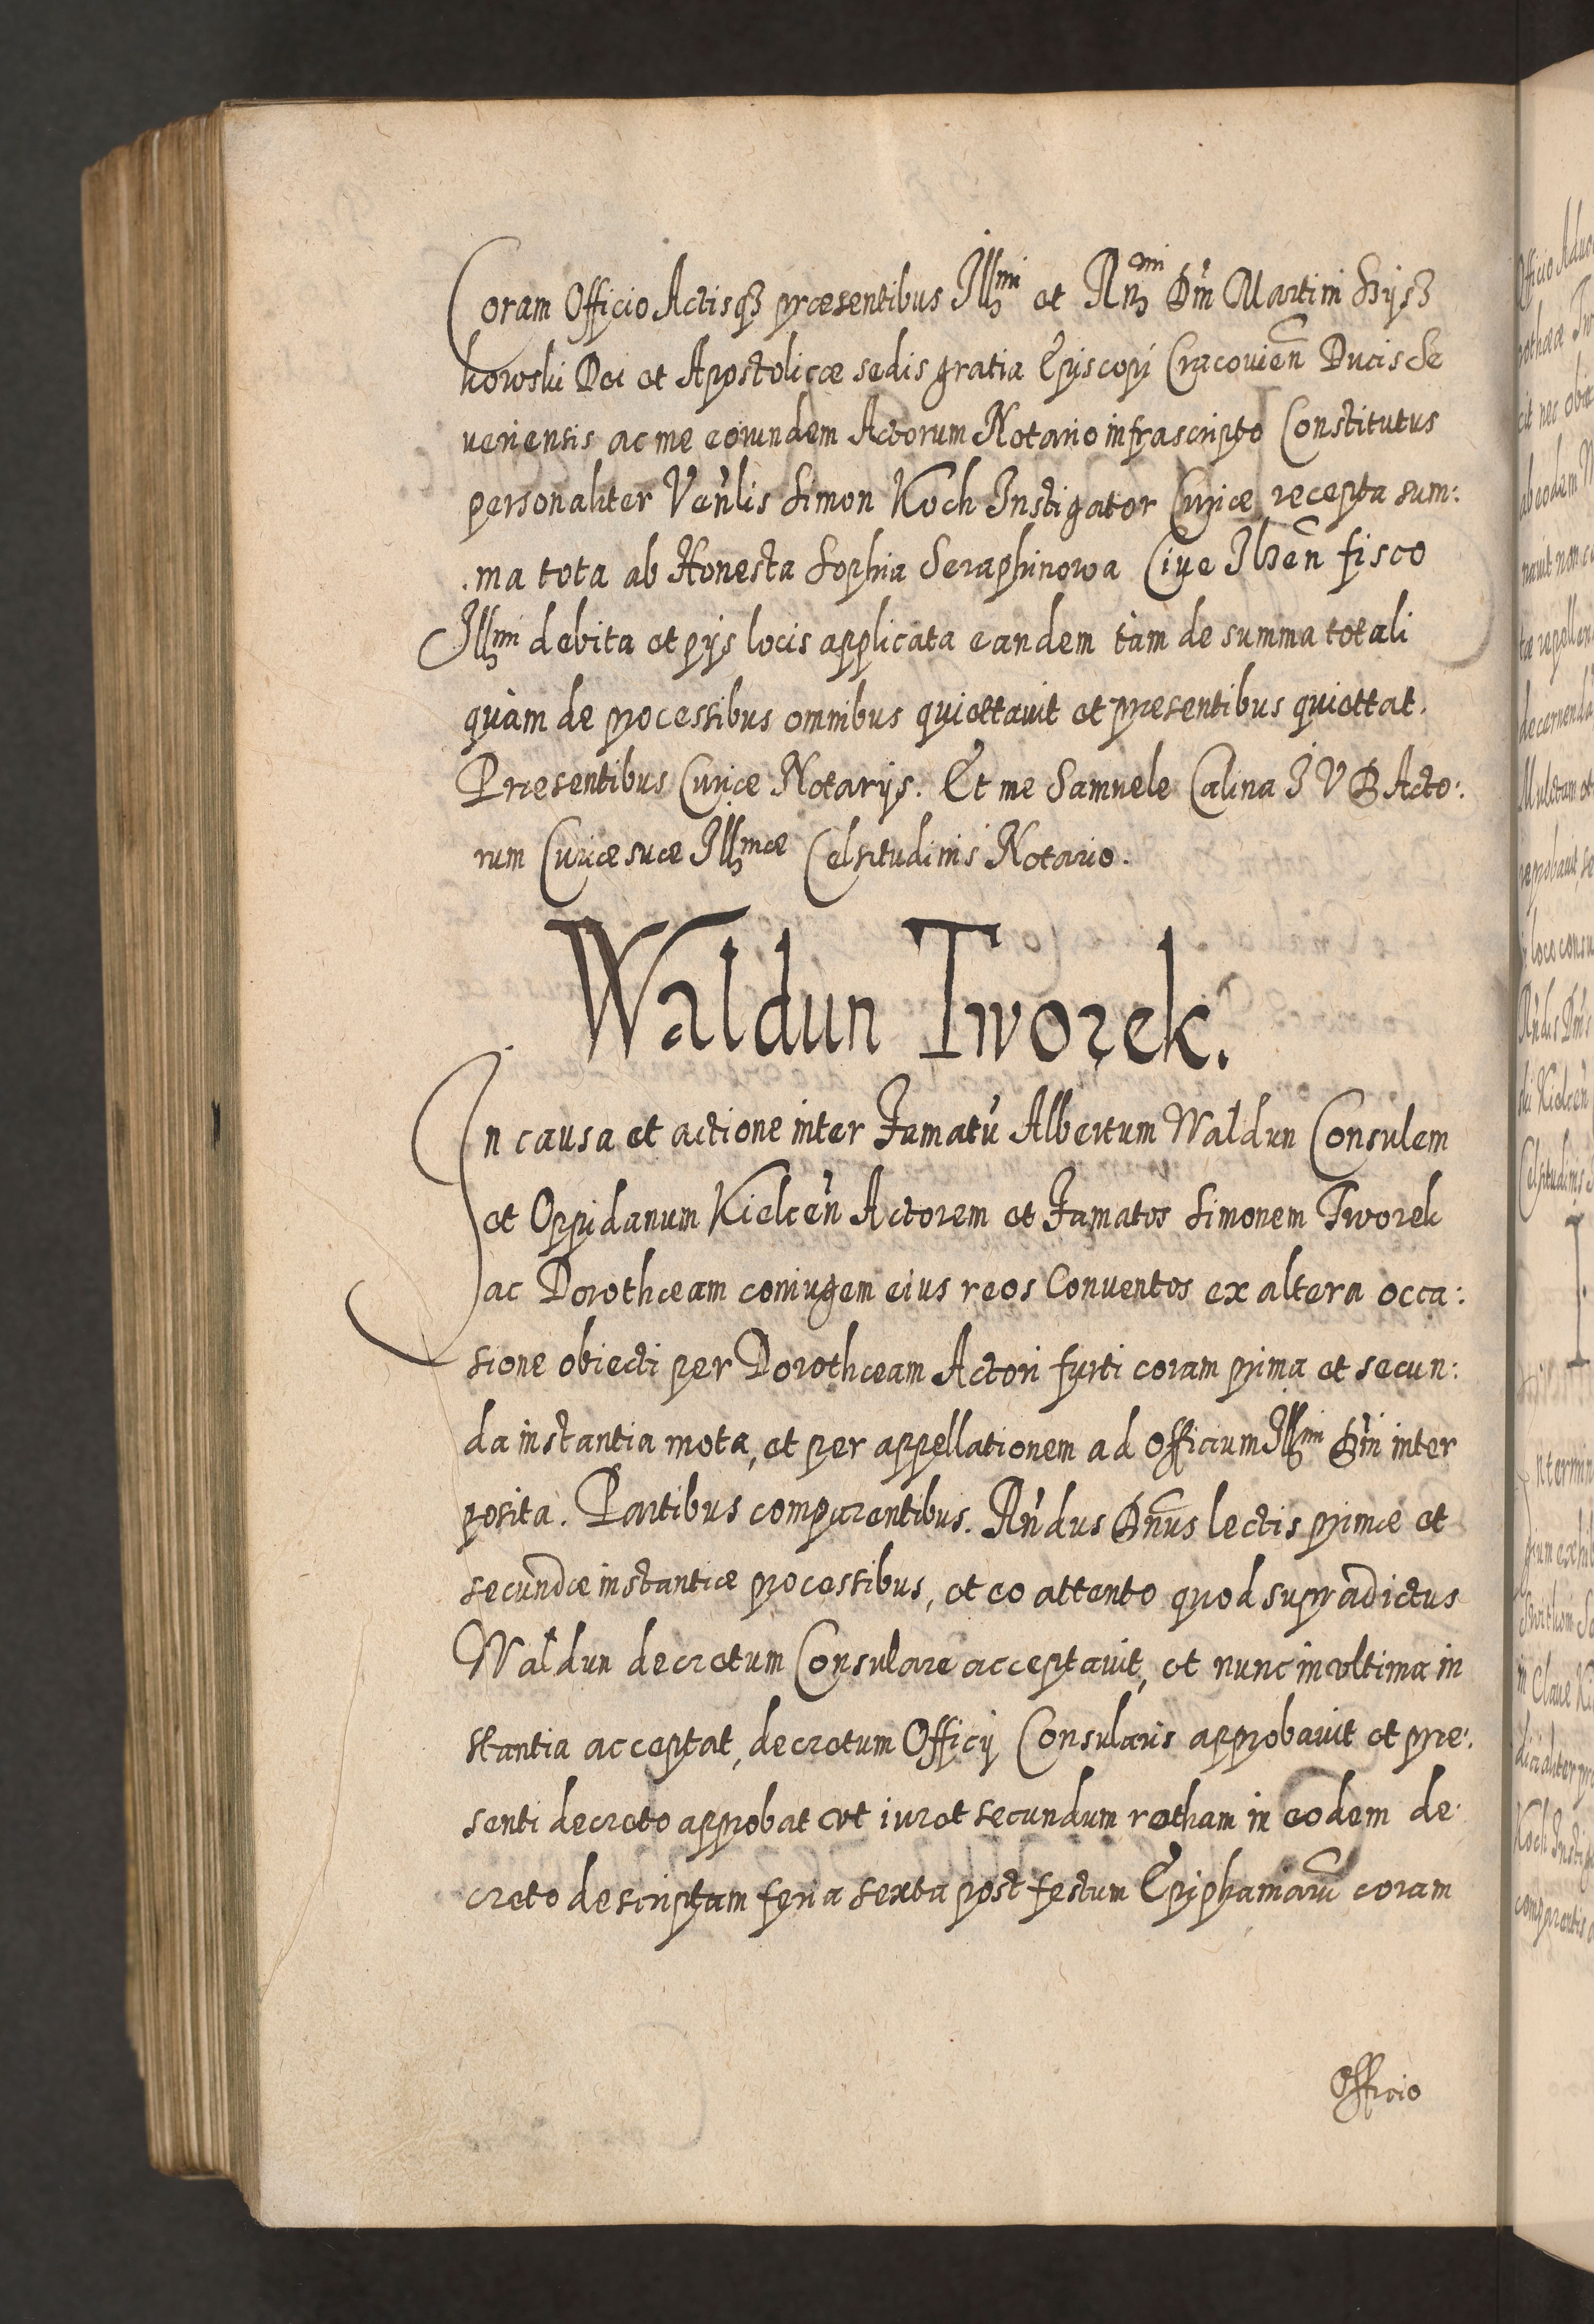 Coram Officio Actisqȝ præsentibus Illmi et Rmi Dni Martini Szysz
kowski Dei et Apostolicæ sedis gratia Episcopi Cracouien Ducis Se
ueriensis ac me eorundem Actorum Notario infrascripto Constitutus
personaliter Venlis Simon Koch Instigator Curiæ recepta sum:
ma tota ab Honesta Sophia Seraphinowa Ciue Ilzen fisco
Illmi debita et pijs locis applicata eandem tàm de summa totali
quàm de processibus omnibus quiettauit et præsentibus quiettat.
Præsentibus Curiæ Notarijs. Et me Samuele Calina I V D Acto:
rum Curiæ suæ Illmæ Celsitudinis Notario.
Waldun Tworek.
In causa et actione inter Famatu Albertum Waldun Consulem
et Oppidanum Kielcen Actorem et Famatos Simonem Tworek
ac Dorothæam coniugem eius reos Conuentos ex altera occa:
sione obiecti per Dorothæam Actori furti coram prima et secun:
da instantia mota, et per appellationem ad Officium Illmi Dni inter
posita. Partibus comparentibus. Rndus Dnus lectis primæ et
secundæ instantiæ processibus, et eo attento quod supradictus
Waldun decretum Consulare acceptauit, et nunc in vltima in
stantia acceptat, decretum Officij Consularis approbauit et præ:
senti decreto approbat vt iuret secundum rotham in eodem de:
creto descriptam feria sexta post festum Epiphaniaru coram
Officio